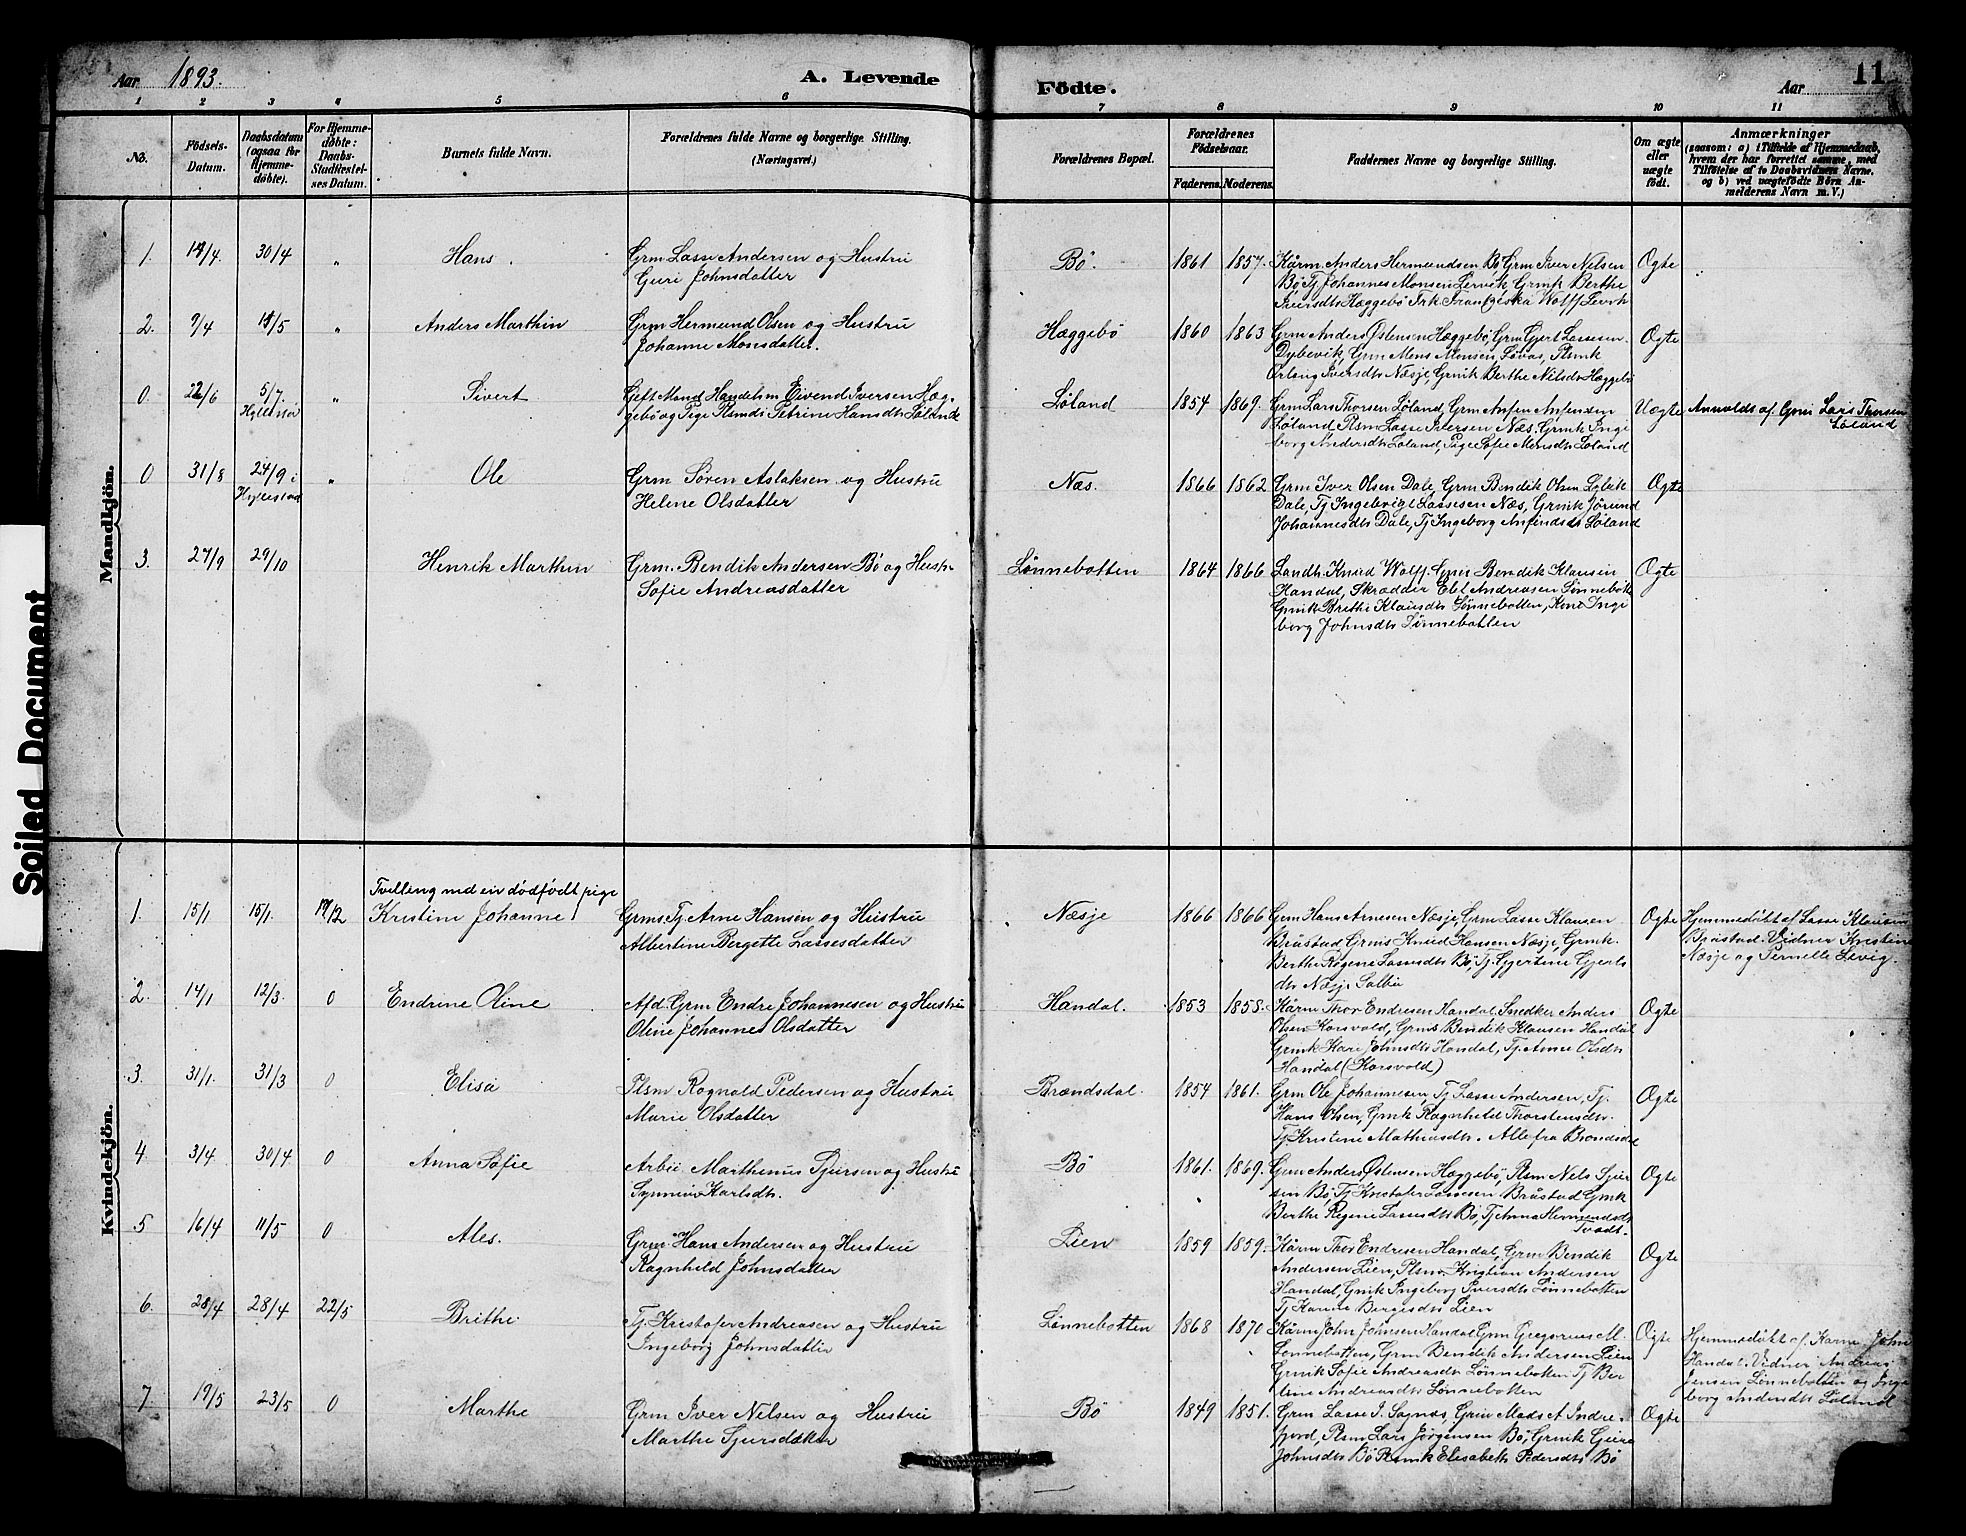 Aar 1893.
A. Levende
Födte.
Aar
11
1 2 3 4 5 6 7 8 9 10 11
No.
Födsels-
Datum.
Daabsdatum
(ogsaa for
Hjemme-
døbte).
For Hjemme-
døbte:
Daabs-
Stadfæstel-
ses Datum.
Barnets fulde Navn.
Forældrenes fulde Navne og borgerlige Stilling.
(Næringsvei.)
Forældrenes Bopæl.
Forældrenes
Födselsaar.
Faderens. Moderens.
Faddernes Navne og borgerlige Stilling.
Om ægte
eller
uægte
født.
Anmærkninger
(saasom: a) i Tilfælde af Hjemmedaab,
hvem der har forrettet samme, med
Tilføielse af to Daabsvidners Navne.
og b) ved uægtefødte Børn An-
melderens Navn m. V.)
Mandkjön.
1. 14/4. 30/4 " Hans. Grm Lasse Andersen og Hustru
Guri Johnsdatter
Bö. 1861 1857. Kårm. Anders Hermundsen Bö, Grm Iver Nilsen
Bö, Tj Johannes Monsen Lervik Grmk Berthe
Iversdtr Hæggebö Frk Franziska Wolff Levik
Ægte
2. 9/4 11/5 " Anders Marthin Grm Hermund Olsen og Hustru
Johanne Monsdatter.
Hæggebö 1860 1863 Grm Anders Østensen Hæggebö, Grm Gjert Lassesen
Dybevik, Grm Mons Monsen, Løvås, Plsmk
Næsje, Grmk Berthe Nilsdtr Hæggebö
Ægte
0. 22/6 5/7. " Sivert Gift Mand Handelsm Eivend Iversen Hæg-
Hyllestad gebö og Pige Plsmds Petrine Hansdtr Løland
Løland 1854 1869. Grm Lars Thorsen Løland, Grm Anfin Anfinsen
Løland Plsm Lasse Petersen Næs, Grmk Inge
borg Andersdtr Løland, Pige Sofie Monsdtr Løland
Uægte Anmeldt af Grm Lars Thorsen
Løland
0 31/8 24/9 i " Ole Grm Sören Aslaksen og Hustru
Hyllestad Helene Olsdatter
Næs. 1866 1862 Grm Iver Olsen Dale Grm Bendik Olsen
Dale, Tj Ingebrigt Lassesen Næs, Grmk Jörund
Johannesdtr Dale, Tj Ingeborg Anfindsdtr Løland
Ægte
3. 27/9 29/10 Henrik Marthin Grm. Bendik Andersen Bö og Hustr.
Sofie Andreasdatter
Lönnebotten 1864 1866 Landh. Knud Wolff. Grm Bendik Klausen
Handal, Skrædder Elet Andreasen Lönnebott
Grmk Brithe Klausdtr Lönnebotten, Kone Inge
borg Johnsdtr Lönnebotten
Ægte
Kvindekjön.
Tvilling med ein dödfödt pige
1. 15/1 15/1. 19/2 Kristine Johanne Grms. Tj. Arne Hansen og Hustru
Albertine Bergette Lassesdatter
Næsje 1866 1866 Grm Hans Arnesen Næsje, Grm Lasse Klausen
Bråstad Grms Knud Hansen Næsje, Grmk.
Berthe Regine Lassesdtr Bö, Tj. Gjertine Gjerts
dtr Næsje
Ægte Hjemmedöbt af Lasse Klausen
Bråstad. Vidner Kristine
Næsje og Pernelle Levig.
2. 14/1 12/3. 0 Endrine Oline Afd. Grm Endre Johannesen og Hustru
Oline Johanne Olsdatter
Handal. 1853 1858. Kårm Thor Endresen Handal, Snedker Anders
Olsen Korsvold, Grms Bendik Klausen Handal
Grmk Kari Johnsdtr Handal, Tj. Anne Olsdtr
Handal (Korsvold)
Ægte
3. 31/1. 31/3 0 Elisa Plsm Ragnald Pedersen og Hustru
Marie Olsdatter
Brændsdal. 1854 1861. Grm Ole Johannesen, Tj Lasse Andersen, Tj.
Hans Olsen, Grmk Ragnhild Thorstensdtr.
Tj. Kristine Mathiasdtr. Alle fra Brændsdal
Ægte
4. 3/4 30/4 0 Anna Sofie Arbei Marthinus Sjursen og Hustru
Synneve Karlsdtr.
Bö 1861. 1869. Grm Anders Østensen Hæggebö, Plsm Nels Sjur
sen Bö, Tj Kristofer Lassesen Bråstad Grmk
Berthe Regine Lassesdtr Bö, Tj Anna Hermundsdtr
Tvadt.
Ægte
5 16/4 11/5 0 Ales. Grm Hans Andersen og Hustru
Ragnhild Johnsdatter
Lien 1859 1859. Kårm Thor Endresen Handal, Grm Bendik
Andersen Lien, Plsm Kristian Andersen
Handal, Grmk Ingeborg Iversdtr Lönnebotten
Tj Karine Bergesdtr Lien
Ægte
6. 28/4 28/4 22/5 Brithe Tj. Kristofer Andreasen og Hustru
Ingeborg Johnsdatter
Lönnebotten 1868 1870 Kårm John Johnsen Handal, Grm Gregorius M.
Lönnebotten, Grm Bendik Andersen Lien
Grmk Sofie Andreasdtr Lönnebotten Tj Ber
tine Andreasdtr Lönnebotten
Ægte Hjemmedöbt af Karm John
Handal. Vidner Andreas
Jensen Lönnebotten og Inge
borg Andersdtr Løland
7 19/5 23/5 0 Marthe Grm Iver Nilsen og Hustru
Marthe Sjursdatter
Bö 1849 1851. Grm Lasse I. Sognes, Grm Mads A Indre-
fjord, Plsm Lars Jörgensen Bö, Grmk Guri
Johnsdtr Bö Plsmk Elisabeth Pedersdtr Bö
Ægte
Soiled Document